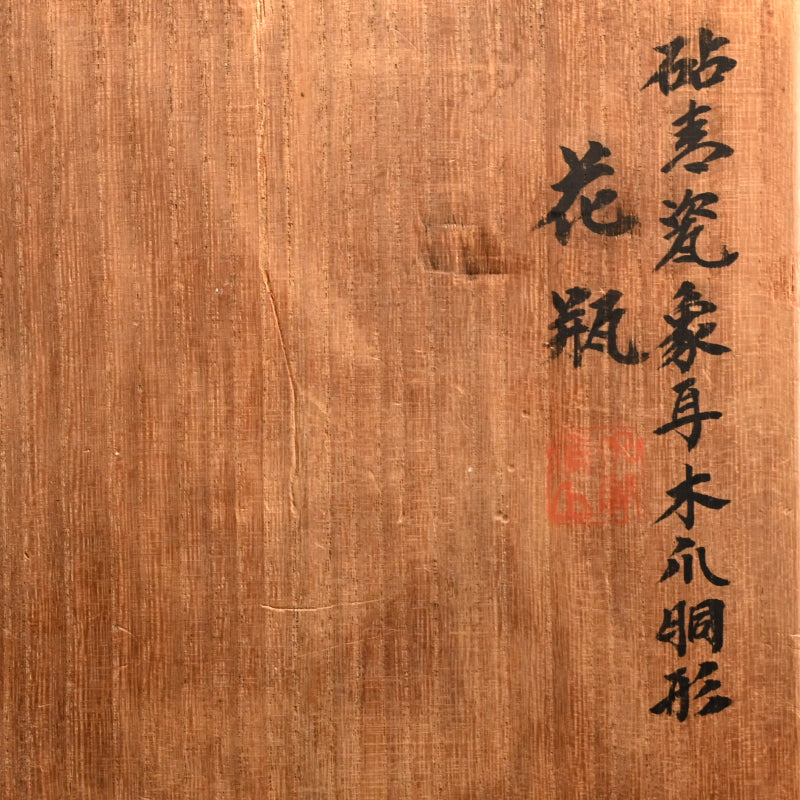 砧青瓷象耳木爪胴形
花瓶